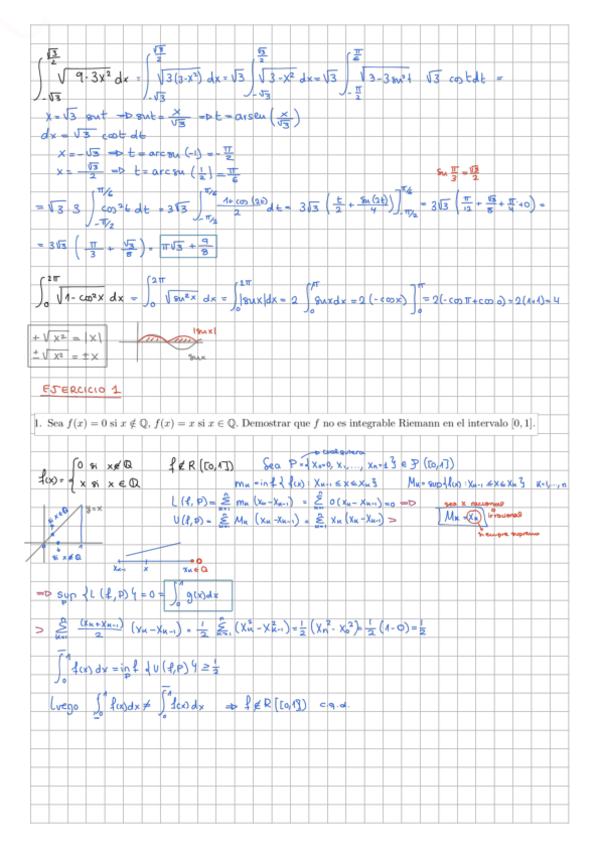 ∫_{-√3}^{√3/2} √(9-3x²) dx = ∫_{-√3}^{√3/2} √(3(3-x²)) dx = √3 ∫_{-√3}^{√3/2} √(3-x²) dx = √3 ∫_{-π/2}^{π/6} √(3-3sen²t) √3 cost dt =
x = √3 sent ⇒ sent = x/√3 ⇒ t = arcsen(x/√3)
dx = √3 cost dt
x = -√3 ⇒ t = arcsen(-1) = -π/2
x = √3/2 ⇒ t = arcsen(1/2) = π/6
sen π/3 = √3/2
= √3·3 ∫_{-π/2}^{π/6} cos²t dt = 3√3 ∫_{-π/2}^{π/6} (1+cos(2t))/2 dt = 3√3 (t/2 + sen(2t)/4)]_{-π/2}^{π/6} = 3√3 (π/12 + √3/8 + π/4 + 0) =
= 3√3 (π/3 + √3/8) = π√3 + 9/8
∫_0^{2π} √(1-cos²x) dx = ∫_0^{2π} √(sen²x) dx = ∫_0^{2π} |senx| dx = 2 ∫_0^π senx dx = 2(-cosx)]_0^π = 2(-cosπ + cos0) = 2(1+1) = 4
+√x² = |x|
±√x² = ±x
|senx|
senx
EJERCICIO 1
1. Sea f(x) = 0 si x ∉ ℚ, f(x) = x si x ∈ ℚ. Demostrar que f no es integrable Riemann en el intervalo [0, 1].
cualquiera
f(x) = { 0 si x∉ℚ
x si x ∈ ℚ
f ∉ R([0,1])
Sea P = {x₀=0, x₁, ..., xₙ=1} ∈ P([0,1])
mₖ = inf{f(x) : xₖ₋₁ ≤ x ≤ xₖ} Mₖ = sup{f(x) : xₖ₋₁ ≤ x ≤ xₖ} k=1,...,n
L(f,P) = Σ_{k=1}^n mₖ(xₖ-xₖ₋₁) = Σ_{k=1}^n 0(xₖ-xₖ₋₁) = 0 ⇒
U(f,P) = Σ_{k=1}^n Mₖ(xₖ-xₖ₋₁) = Σ_{k=1}^n xₖ(xₖ-xₖ₋₁) >
sea x racional
o irracional
Mₖ = xₖ
siempre supremo
y=x
x∈ℚ
x∉ℚ
xₖ₋₁ x xₖ∈ℚ
⇒ sup_P {L(f,P)} = 0 = ∫_0^1 g(x)dx
> Σ_{k=1}^n (xₖ+xₖ₋₁)/2 (xₖ-xₖ₋₁) = 1/2 Σ_{k=1}^n (xₖ²-xₖ₋₁²) = 1/2 (xₙ²-x₀²) = 1/2 (1-0) = 1/2
∫_0^1 f(x)dx = inf_P {U(f,P)} ≥ 1/2
Luego ∫_0^1 f(x)dx ≠ ∫_0^1 f(x)dx ⇒ f ∉ R([0,1]) c.q.d.